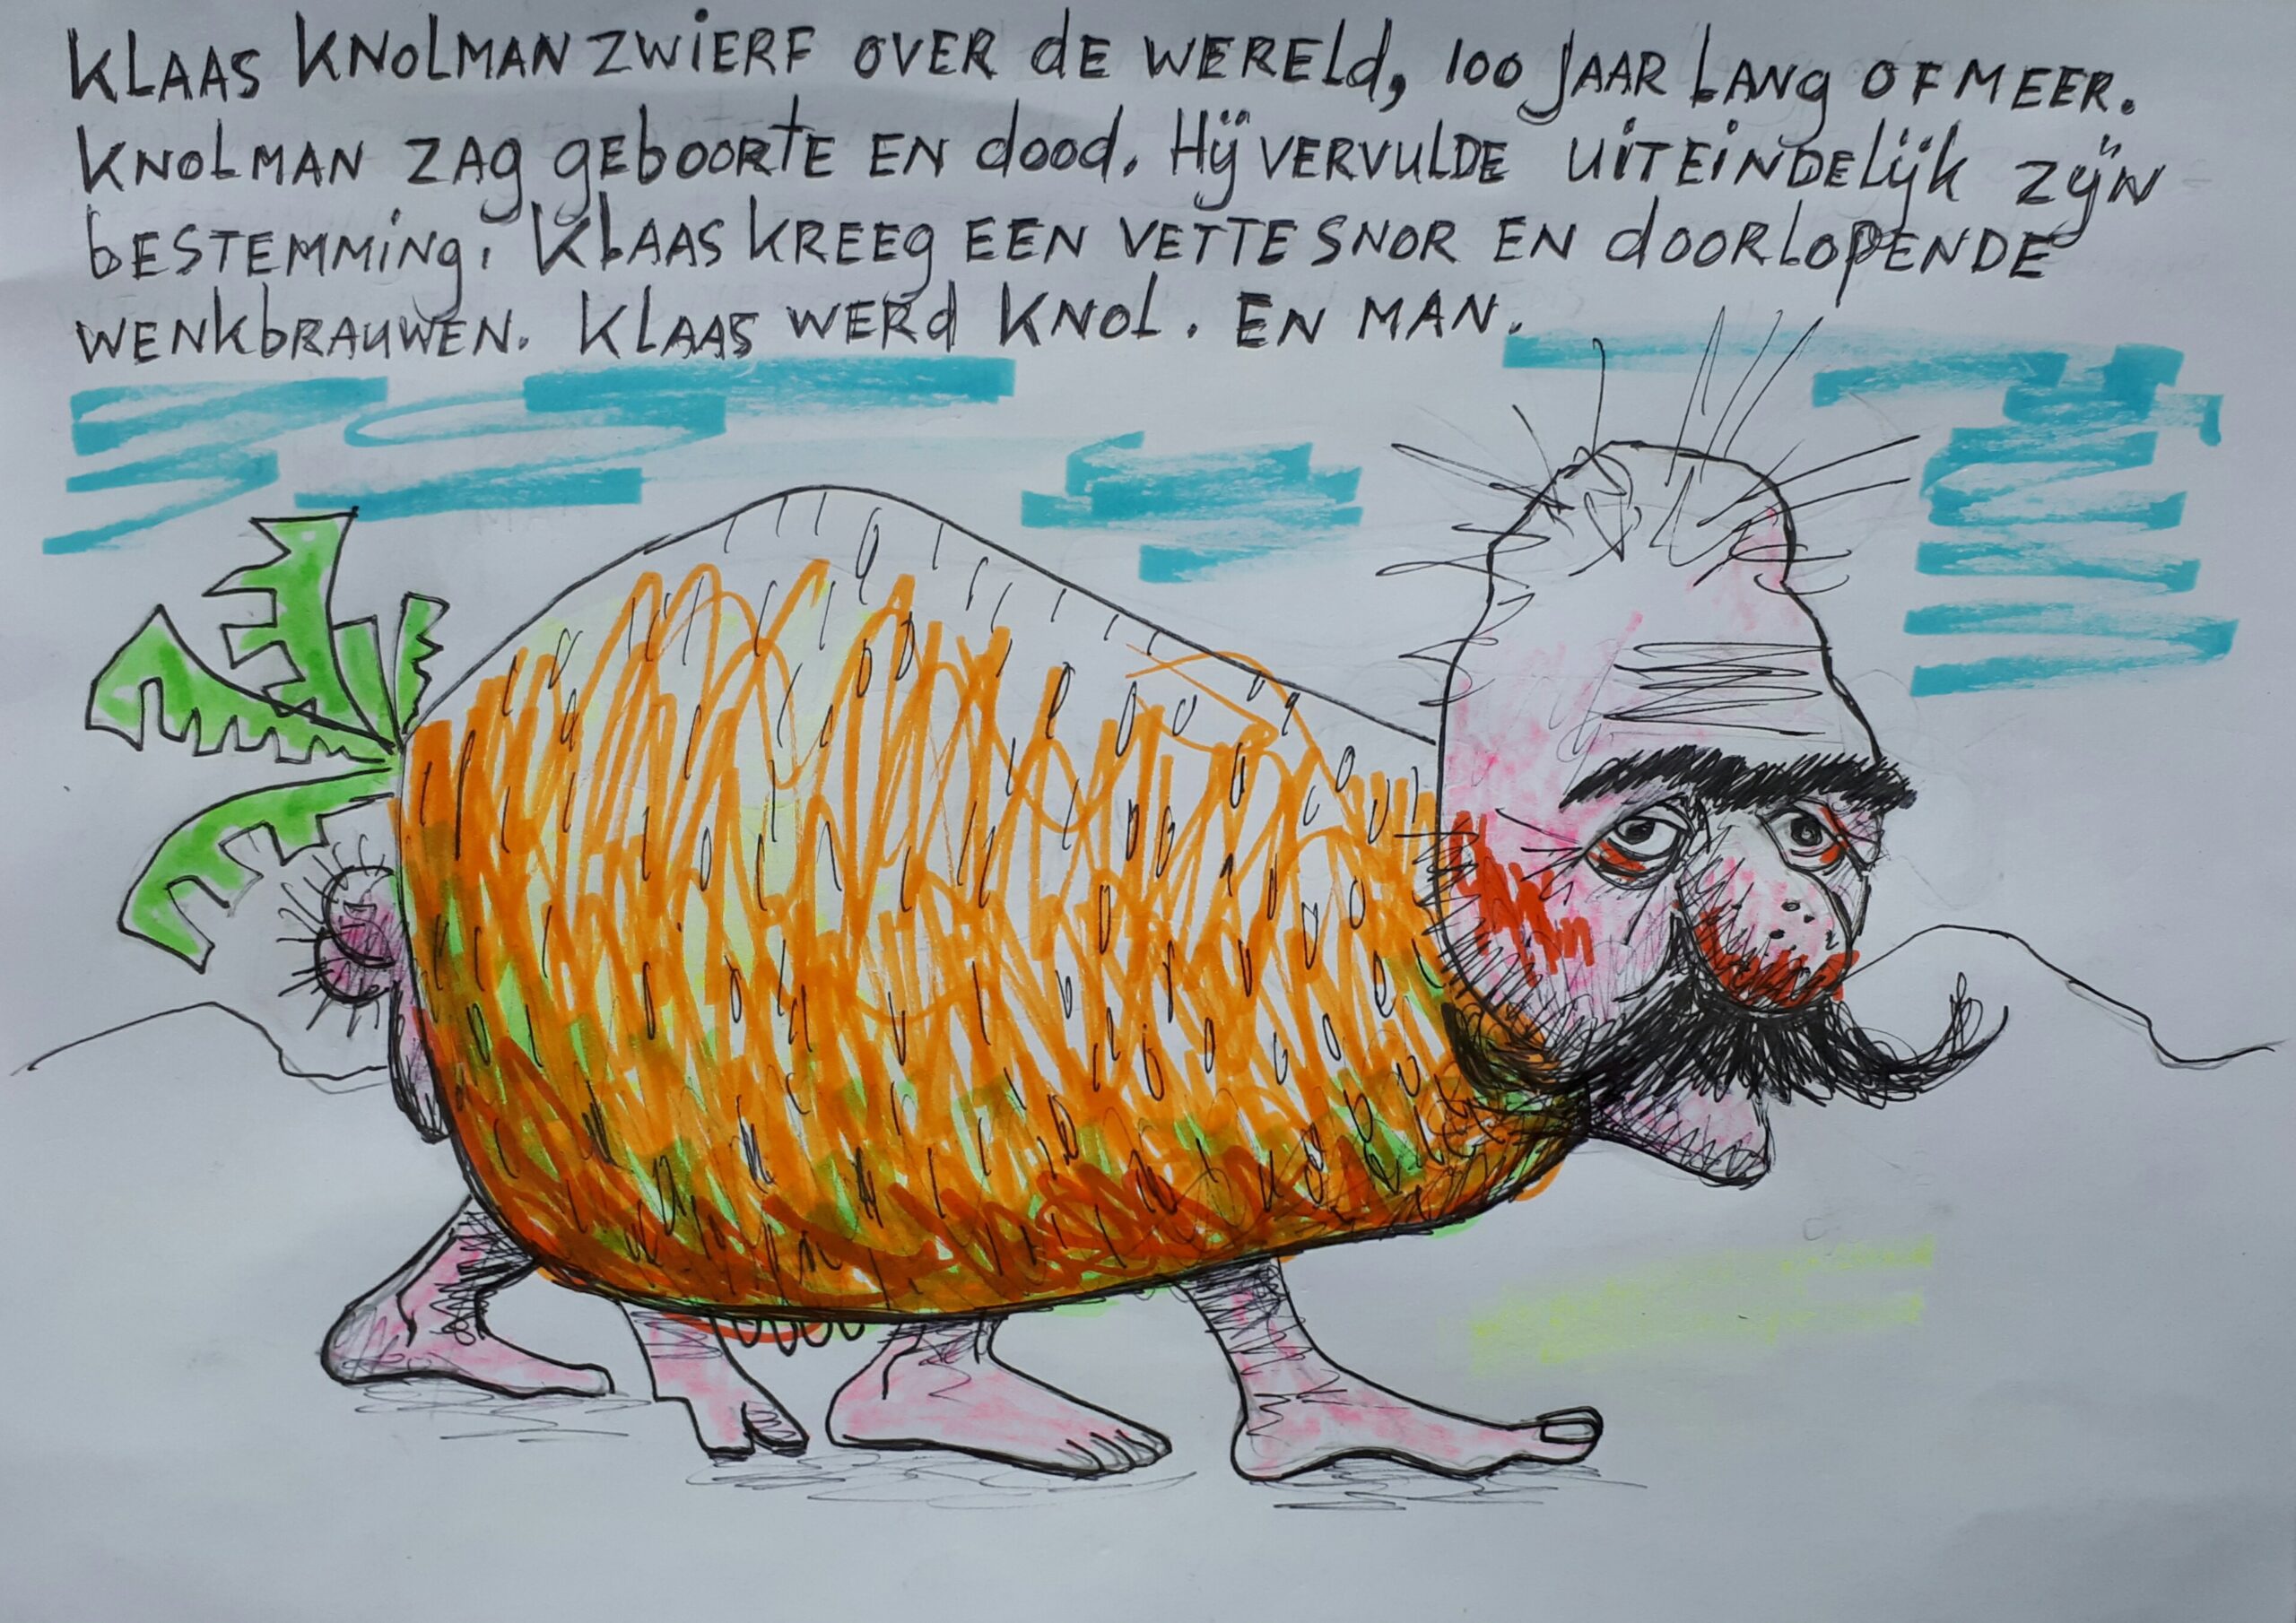 KLAAS KNOLMAN ZWIERF OVER DE WERELD, 100 JAAR LANG OF MEER.
KNOLMAN ZAG GEBOORTE EN DOOD. HIJ VERVULDE UITEINDELIJK ZIJN
BESTEMMING. KLAAS KREEG EEN VETTE SNOR EN DOORLOPENDE
WENKBRAUWEN. KLAAS WERD KNOL. EN MAN.